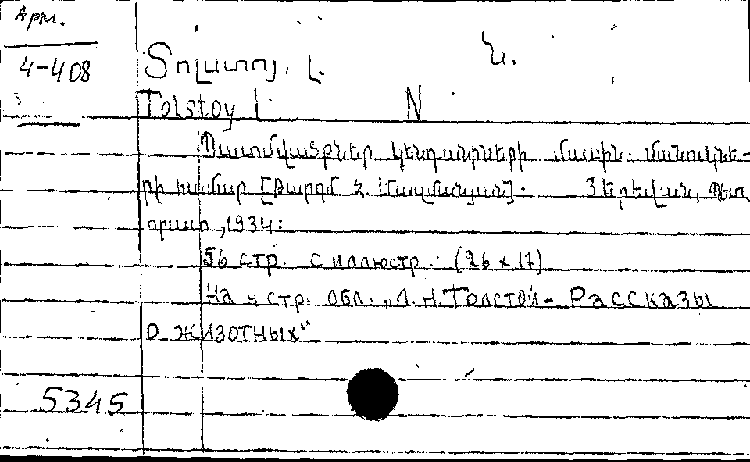 Арм.
4-408
Տոլստոյ. Լ. Ն.
Tolstoy L N
Պատմվածքներ կենդանիների մասին. մանուկնե-
րի համար [Թարգմ Հ. ]. Յերեվան, Պետ
հրատ, 1934:
56 стр. с иллюстр. (26 x 17)
На 4 стр. обл. „Л. Н. Толстой - Рассказы
о животных"
5345